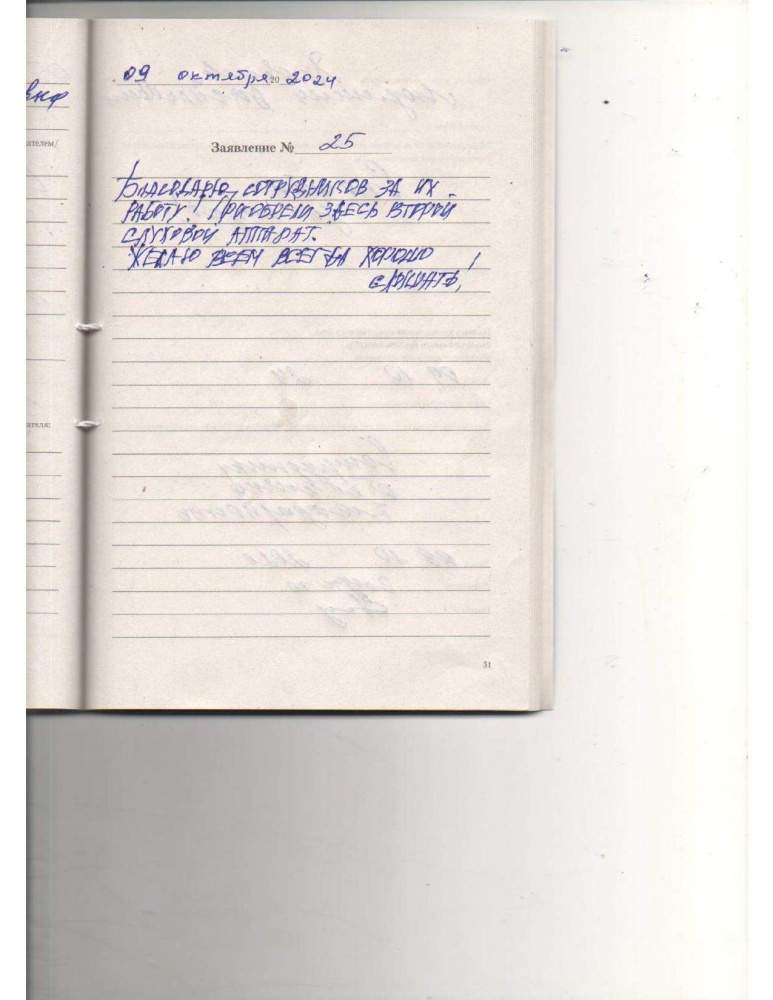 09 октября 20 2024
Заявление № 25
Благодарю сотрудников за их
работу! Приобрели здесь второй
слуховой аппарат.
Желаю всем всегда хорошо
слышать!
31